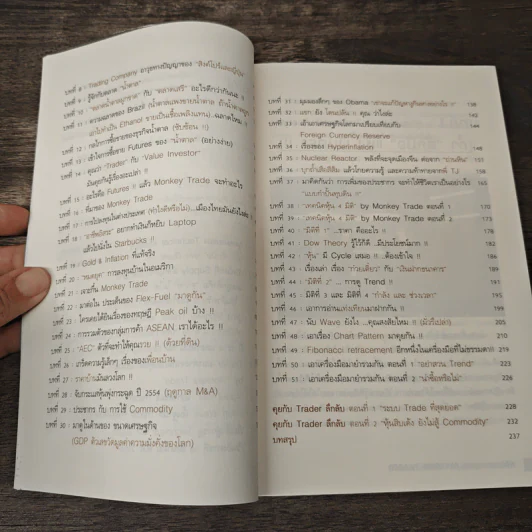 บทที่ 8 : Trading Company อาวุธทางปัญญาของ "สิงคโปร์และญี่ปุ่น
บทที่ 9 : รู้จักกับตลาด "น้ำตาล"
บทที่ 10 : "ตลาดน้ำตาลผูกขาด" กับ "ตลาดเสรี" อะไรดีกว่ากันนะ !!
บทที่ 11 : ความฉลาดของ Brazil (น้ำตาลแพงขายน้ำตาล ถ้าน้ำตาลถูก
เอาไปทำเป็น Ethanol ขายเป็นเชื้อเพลิงแทน)...ฉลาดไหม !!
บทที่ 12 : กลไกการซื้อขายของธุรกิจน้ำตาล (ซับซ้อน !!)
บทที่ 13 : เข้าใจการซื้อขาย Futures ของ "น้ำตาล" (อย่างง่าย)
บทที่ 14 : คุณว่า "Trader" กับ "Value Investor"
มันคุยกันรู้เรื่องไหมนะ
บทที่ 15 : อะไรคือ Futures !! แล้ว Monkey Trade จะทำอะไร
บทที่ 16 : ทีมของ Monkey Trade
บทที่ 17 : การไปลงทุนในต่างประเทศ (ทำไงดีหรือไม่)...เมืองไทยมันยังไงล่ะ
บทที่ 18 : "อาชีพอิสระ" อยากทำเงินก็หยิบ Laptop
แล้วไปนั่งใน Starbucks !!
บทที่ 19 : Gold & Inflation ที่แท้จริง
บทที่ 20 : "ขอบคุณ" การลงทุนบ้านในอเมริกา
บทที่ 21 : เจาะกึ๋น Monkey Trade
บทที่ 22 : มาต่อใน ประเด็นของ Flex-Fuel "มาดูกัน"
บทที่ 23 : ใครเคยได้ยินเรื่องของทฤษฎี Peak oil บ้าง !!
บทที่ 24 : การรวมตัวของกลุ่มการค้า ASEAN เราได้อะไร !!
บทที่ 25 : "AEC" ตัวที่จะทำให้คุณรวย !! (ด้วยที่ดิน)
บทที่ 26 : เกร็ดความรู้เล็กๆ เรื่องของเพื่อนบ้าน
บทที่ 27 : ราคาบ้านในดวงโลก !!
บทที่ 28 : จับกระแสหุ้นพุ่งกระฉูด ปี 2554 (ฤดูกาล M&A)
บทที่ 29 : ประชากร กับ การใช้ Commodity
บทที่ 30 : มาดูในด้านของ ขนาดเศรษฐกิจ
(GDP ตัวเลขวัดมูลค่าความมั่งคั่งของโลก)
บทที่ 31 : มุมมองลึกๆ ของ Obama 138
บทที่ 32 : 142
บทที่ 33 : 144
Foreign Currency Reserve
บทที่ 34 : เรื่องของ Hyperinflation
บทที่ 35 : Nuclear Reactor... พลังที่จะจุดเมืองจีน ต่อจาก "ถ่านหิน"
"แบบทำเป็นทุนเดิม" !!
บทที่ 38 : "เทคนิคหุ้น 4 มิติ" by Monkey Trade ตอนที่ 1 170
บทที่ 39 : "เทคนิคหุ้น 4 มิติ" by Monkey Trade ตอนที่ 2 173
บทที่ 40 : "มิติที่ 1" ...ราคา คืออะไร !! 177
บทที่ 41 : Dow Theory รู้ไว้ก็ดี ..มีประโยชน์มาก !! 182
บทที่ 42 : "หุ้น" มี Cycle เสมอ !!...ต้องเข้าใจ !! 186
บทที่ 43 : เรื่องเล่า เรื่อง "ก๋วยเตี๋ยว" กับ "เงินฝากธนาคาร" 191
บทที่ 44 : "มิติที่ 2" ... การดู Trend !! 193
บทที่ 45 : มิติที่ 3 และ มิติที่ 4 "กำลัง และ ช่วงเวลา"
บทที่ 47 : นับ Wave ยังไง ...คุณสงสัยไหม !! 205
บทที่ 48 : เอาเรื่อง Chart Pattern มาคุยกัน !!
บทที่ 49 : Fibonacci retracement อีกหนึ่งในเครื่องมือที่ไม่ธรรมดา!!!
บทที่ 50 : เอาเครื่องมือมาย่ำรวมกัน ตอนที่ 1 "อย่าสวน Trend"
บทที่ 51 : เอาเครื่องมือมาย่ำรวมกัน ตอนที่ 2 "น่าซื้อหรือไม่"
คุยกับ Trader ลึกลับ ตอนที่ 1 "ระบบ Trade ที่สุดยอด" 228
คุยกับ Trader ลึกลับ ตอนที่ 2 "หุ้นสิบเด้ง ยังไม่สู้ Commodity" 232
บทสรุป 237